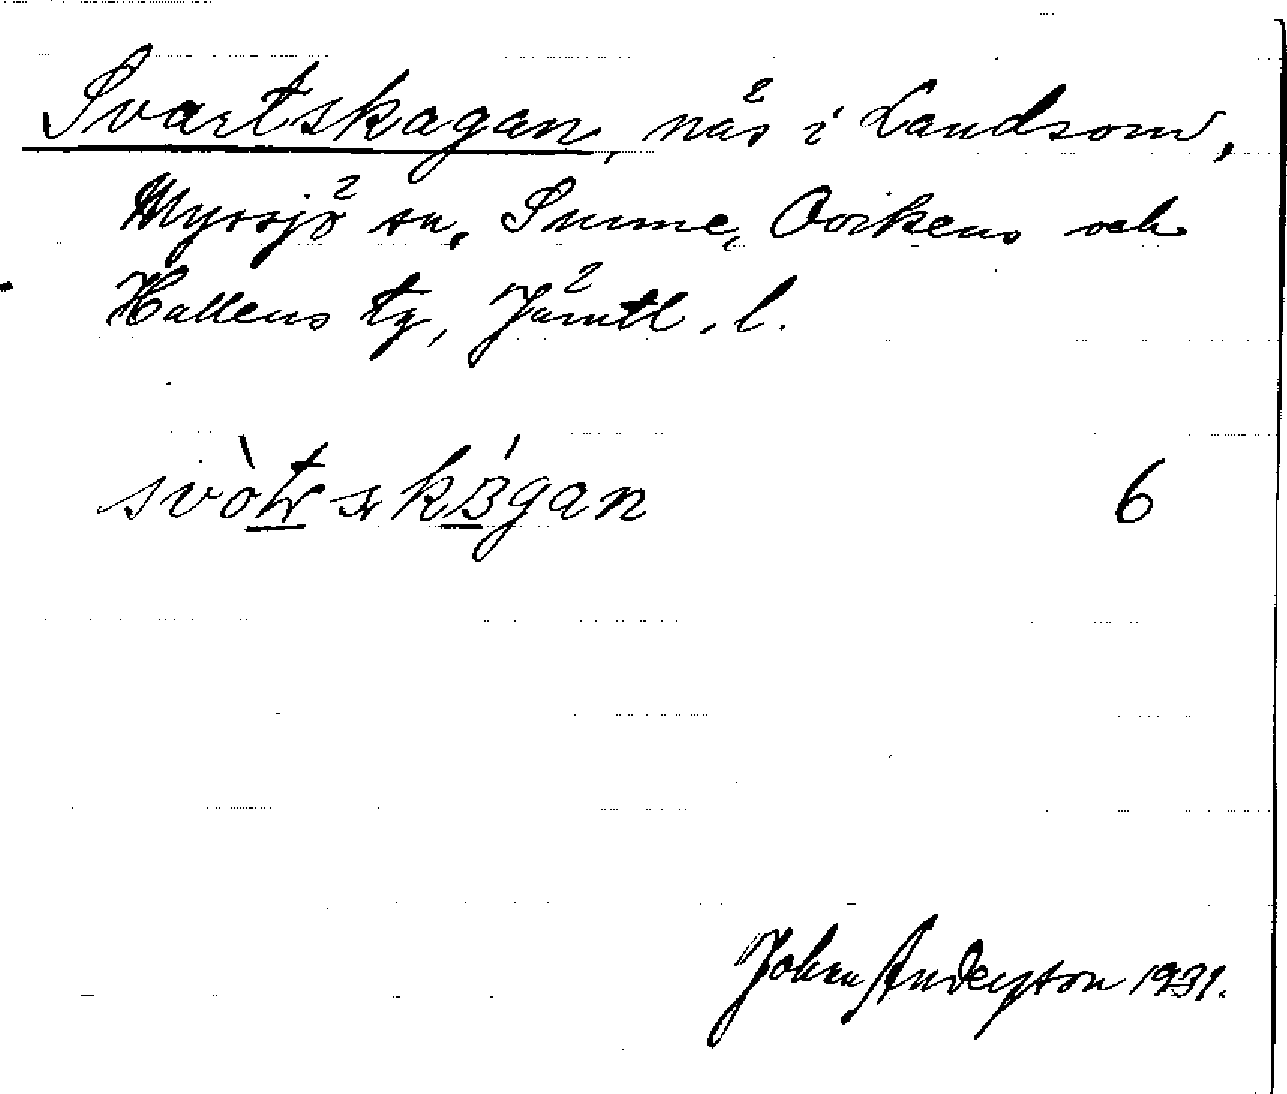 Svartskagan, näs i Landsom,
Myssjö sn, Sunne, Ovikens och
Hallens tg, Jämtl. l.
6
John Anderson 1931.